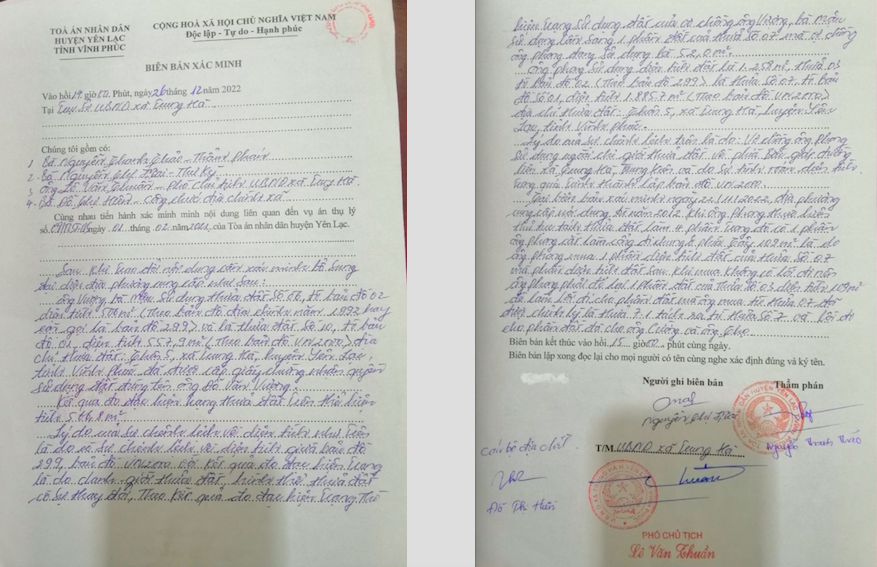 TOÀ ÁN NHÂN DÂN
HUYỆN YÊN LẠC
TỈNH VĨNH PHÚC
CỘNG HOÀ XÃ HỘI CHỦ NGHĨA VIỆT NAM
Độc lập - Tự do - Hạnh phúc
BIÊN BẢN XÁC MINH
Vào hồi 14 giờ 00 Phút, ngày 26 tháng 12 năm 2022
Tại Trụ sở UBND xã Trung Hà
Chúng tôi gồm có:
1. Bà Nguyễn Thanh Thảo - Thẩm phán
2. Bà Nguyễn Thị - Thư ký
3. Ông Lê Văn Thuần - Phó Chủ tịch UBND xã Trung Hà
4. Bà Đỗ Thị Hiền - Công chức địa chính xã
Cùng nhau tiến hành xác minh nội dung liên quan đến vụ án thụ lý
số ngày 01 tháng 02 năm của Tòa án nhân dân huyện Yên Lạc.
Sau khi trao đổi nội dung cần xác minh bổ sung
đại diện địa phương cung cấp như sau:
Ông Vượng, bà Mậu sử dụng thửa đất số tờ bản đồ 02
diện tích (Theo bản đồ địa chính năm 1992 hay
còn gọi là bản đồ 299) và là thửa số 10, tờ bản
đồ 01, diện tích 557,9 m² (Theo bản đồ VN2000) địa
chỉ thửa đất: Thôn 5, xã Trung Hà, huyện Yên Lạc,
tỉnh Vĩnh Phúc đã được cấp giấy chứng nhận quyền
sử dụng đất đứng tên ông Văn Vượng.
Kết quả đo đạc hiện trạng thửa đất trên thể hiện
tích
Lý do của sự chênh lệch về diện tích như trên
là do có sự chênh lệch về diện tích giữa bản đồ
299, bản đồ VN2000 với kết quả đo đạc hiện trạng
là do ranh giới thửa đất, hình thể thửa đất
có sự thay đổi, Theo kết quả đo đạc hiện trạng thì
hiện trạng sử dụng đất của vợ chồng ông Vượng, bà Mậu
sử dụng lấn sang 1 phần đất của thửa số 07 mà vợ chồng
ông Phong đang sử dụng là 52,0 m².
Ông Phong sử dụng diện tích đất là 1.258 m², thửa 03
tờ bản đồ 02 (Theo bản đồ 299) là thửa số 07, tờ bản
đồ số 01, diện tích 1.885,7 m² (Theo bản đồ VN2000)
địa chỉ thửa đất: Thôn 5, xã Trung Hà, huyện Yên
Lạc, tỉnh Vĩnh Phúc.
Lý do của sự chênh lệch trên là do: Vợ chồng ông Phong
sử dụng ngoài chỉ giới thửa đất về phía Bắc giáp đường
liên xã Trung Hà, Trung Kiên và do sự tính toán diện tích
trong quá trình thành lập bản đồ VN2000.
Tại biên bản xác minh ngày 22/11/2022, địa phương
cung cấp nội dung từ năm 2012 khi ông Phong thực hiện
thủ tục tách thửa đất làm 4 phần trong đó có 1 phần
ông Phong cắt làm cổng đi chung 2 phần giấy 109 m² là do
ông Phong mua 1 phần diện tích đất của thửa số 07
và phần diện tích đất sau khi mua không có lối đi nên
ông Phong phải để lại 1 phần đất của thửa số 03 diện tích 109 m²
để làm lối đi cho phần đất mà ông mua từ thửa 07 đã
được chỉnh lý là thửa 7.1 tách ra từ thửa số 7 và lối đi
cho phần đất đã cho ông Cường và ông Thọ
Biên bản kết thúc vào hồi 15 giờ 00 phút cùng ngày.
Biên bản lập xong đọc lại cho mọi người có tên cùng nghe xác định đúng và ký tên.
Người ghi biên bản
Thẩm phán
Nguyễn Thị
Nguyễn Thanh Thảo
Cán bộ địa chính
T/M UBND xã Trung Hà
Đỗ Thị Hiền
PHÓ CHỦ TỊCH
Lê Văn Thuần